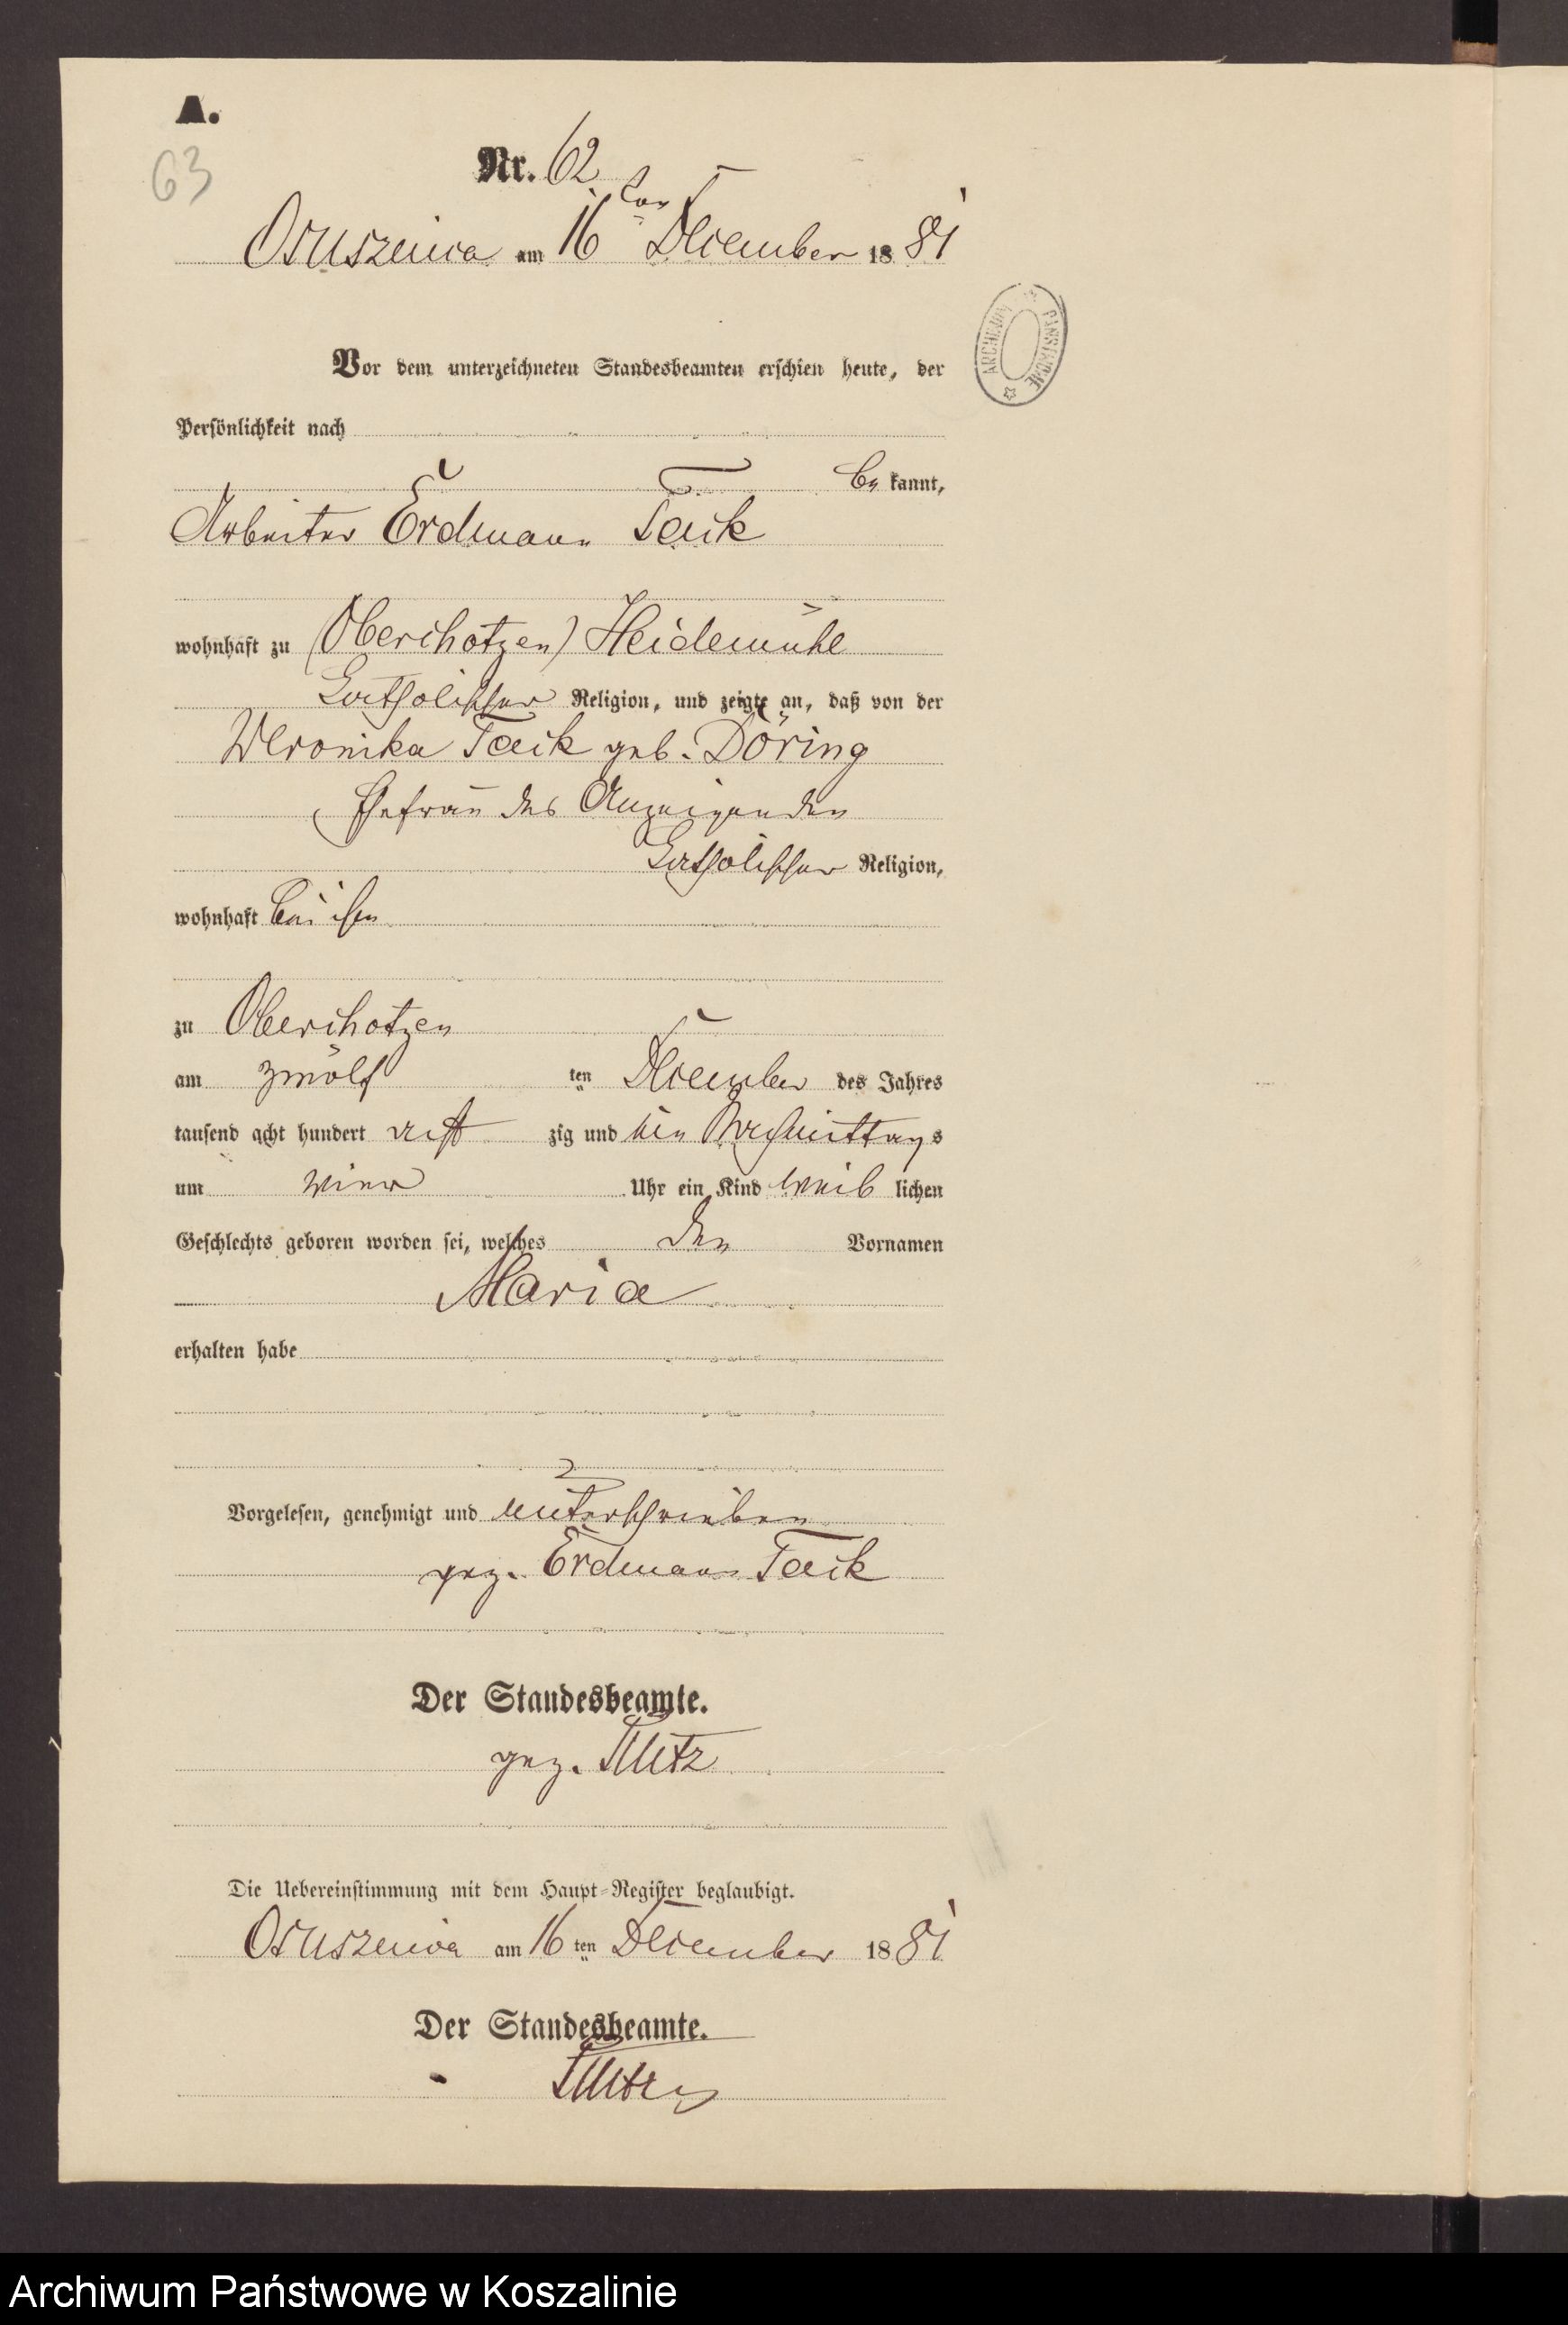 A.
63
Nr. 62
Osuszenica am 16ten December 1881
ARCHIWUM PAŃSTWOWE
Vor dem unterzeichneten Standesbeamten erschien heute, der
Persönlichkeit nach
be kannt,
Arbeiter Erdmann
wohnhaft zu (Oberchotzen) Heidemühl
katholischer Religion, und zeigte an, daß von der
Weronika geb. Döring
Ehefrau des Anzeigenden
katholischer Religion,
wohnhaft bei ihm
zu Oberchotzen
am zwölf ten December des Jahres
tausend acht hundert acht zig und ein Nachmittags
um vier Uhr ein Kind weib lichen
Geschlechts geboren worden sei, welches den Vornamen
Maria
erhalten habe
Vorgelesen, genehmigt und unterschrieben
gez. Erdmann
Der Standesbeamte.
gez.
Die Uebereinstimmung mit dem Haupt-Register beglaubigt.
Osuszenica am 16 ten December 1881
Der Standesbeamte.
Archiwum Państwowe w Koszalinie